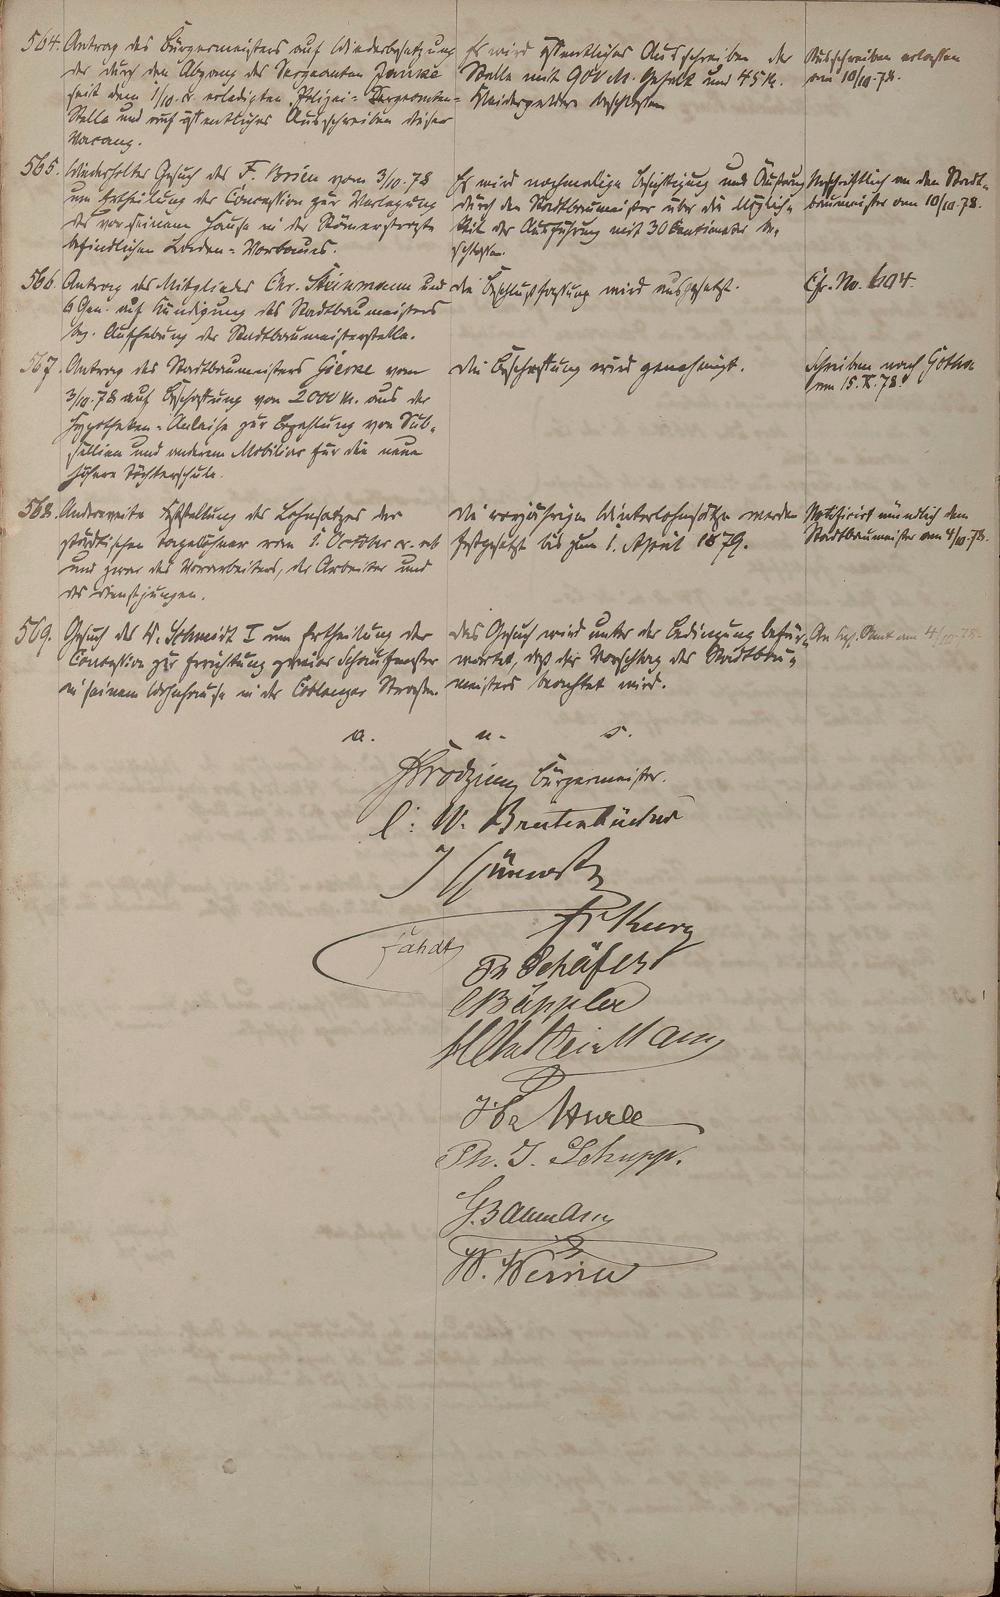 564. Antrag des Bürgermeisters auf Wiederbesetzung
der durch den Abgang des Sergeanten Janke
seit dem 1/10. cr. erledigten Polizei-Sergeanten-
Stelle und auf öffentliches Ausschreiben dieser
Vacanz.
Es wird öffentliches Ausschreiben der
Stelle mit 900 M. Gehalt und 45 M.
Kleidergelder beschlossen
Ausschreiben erlassen
am 10/10.78.
565. Wiederholtes Gesuch des F. Brien vom 3/10.78
um Ertheilung der Concession zur Verlegung
des vor seinem Hause in der Römerstraße
befindlichen Laden-Vorbaues.
Es wird nochmalige Besichtigung und
durch den Stadtbaumeister über die Möglich-
keit der Ausführung mit 30 Centimeter be-
schlossen.
an den Stadt-
baumeister am 10/10.78.
566. Antrag des Mitgliedes Chr. Steinmann und
6 Gen. auf Kündigung des Stadtbaumeisters
bez. Aufhebung der Stadtbaumeisterstelle.
Die Beschlußfassung wird ausgesetzt.
Cfr. No. 604.
567. Antrag des Stadtbaumeisters vom
3/10.78 auf Beschaffung von 2000 M. aus der
Hypotheken-Anleihe zur Bezahlung von Sub-
sellien und anderem Mobiliar für die neue
höhere Töchterschule.
Die Beschaffung wird genehmigt.
Schreiben nach Gotha
am 15.X.78.
568. Anderweite Feststellung des Lohnsatzes der
städtischen Tagelöhner vom 1. October cr. ab
und zwar des Vorarbeiters, der Arbeiter und
des Dienstjungen.
Die vorjährigen Winterlohnsätze werden
festgesetzt bis zum 1. April 1879.
Notificirt mündlich dem
Stadtbaumeister am 4/10.78.
569. Gesuch des W. Schmidt I um Ertheilung der
Concession zur Errichtung zweier Schaufenster
an seinem Wohnhause in der Coblenzer Straße.
Das Gesuch wird unter der Bedingung befür-
wortet, daß der Vorschlag des Stadtbau-
meisters beachtet wird.
An Kgl. Amt am 4/10.78.
a. u. s.
Bürgermeister.
W. Breitenbücher
Fr Kurz
Jahdt
Ph Schäfer
Bäppler
Steinmann
Ph. J. Schupp.
G. Baumann
W. Werner